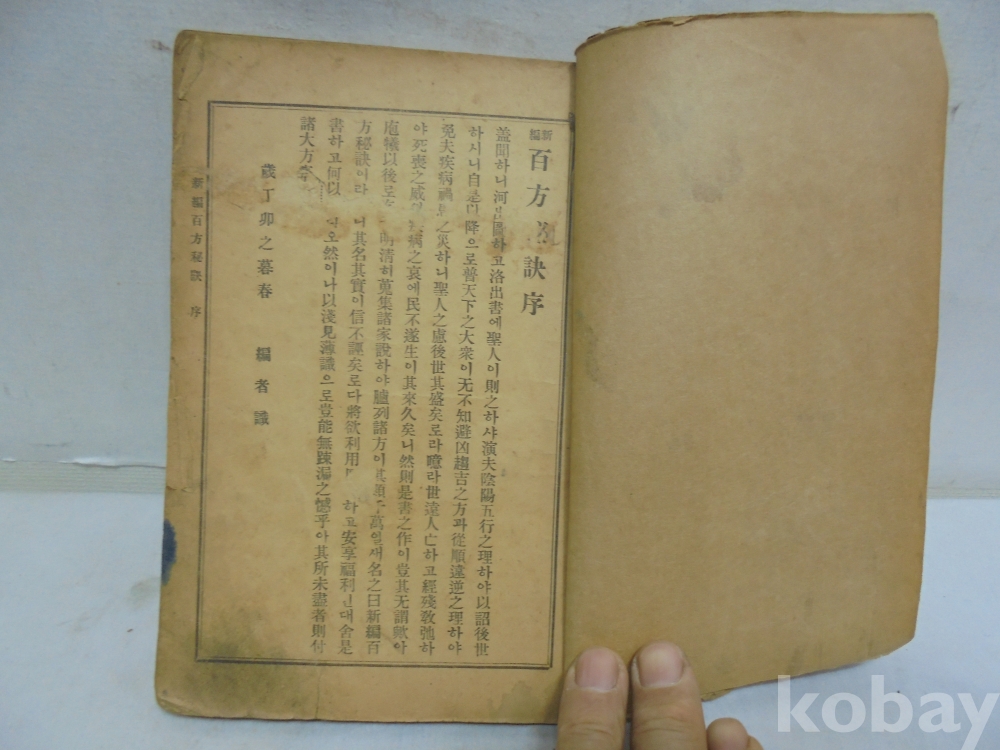 新編 百方 訣序
蓋聞하니河 圖하고洛出書에聖人이則之하샤演夫陰陽五行之理하야以詔後世
하시니自是以降으로普天下之大衆이无不知避凶趨吉之方과從順遠逆之理하야
免夫疾病 之災하니聖人之慮後世其盛矣로라噫라世達人亡하고經殘敎弛하
야死喪之威 病之哀에民不遂生이其來久矣니然則是書之作이豈其无謂歟아
庖犧以後로 明清히蒐集諸家說하야臚列諸方이 萬일새名之曰新編百
方秘訣이라 니其名其實이信不誣矣로다將欲利用 하고安享福利 대舍是
書하고何以 오然이나以淺見薄識으로豈能無疎漏之憾乎아其所未盡者則付
諸大方
歲丁卯之暮春 編者識
新編百方秘訣 序
kobay